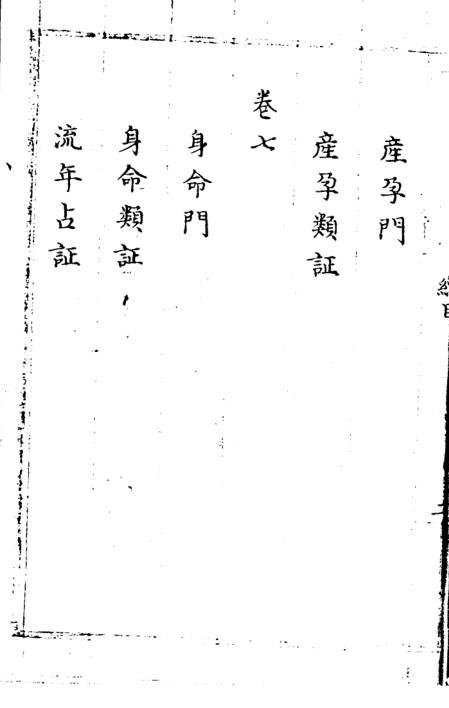 産孕門
産孕類証
卷七
身命門
身命類証
流年占証